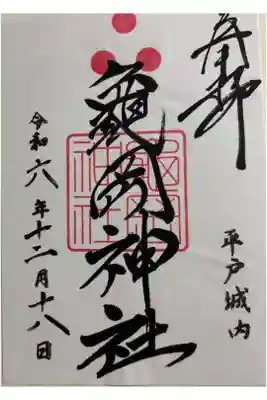 奉拝
平戸城内
亀岡神社
令和六年十二月十八日